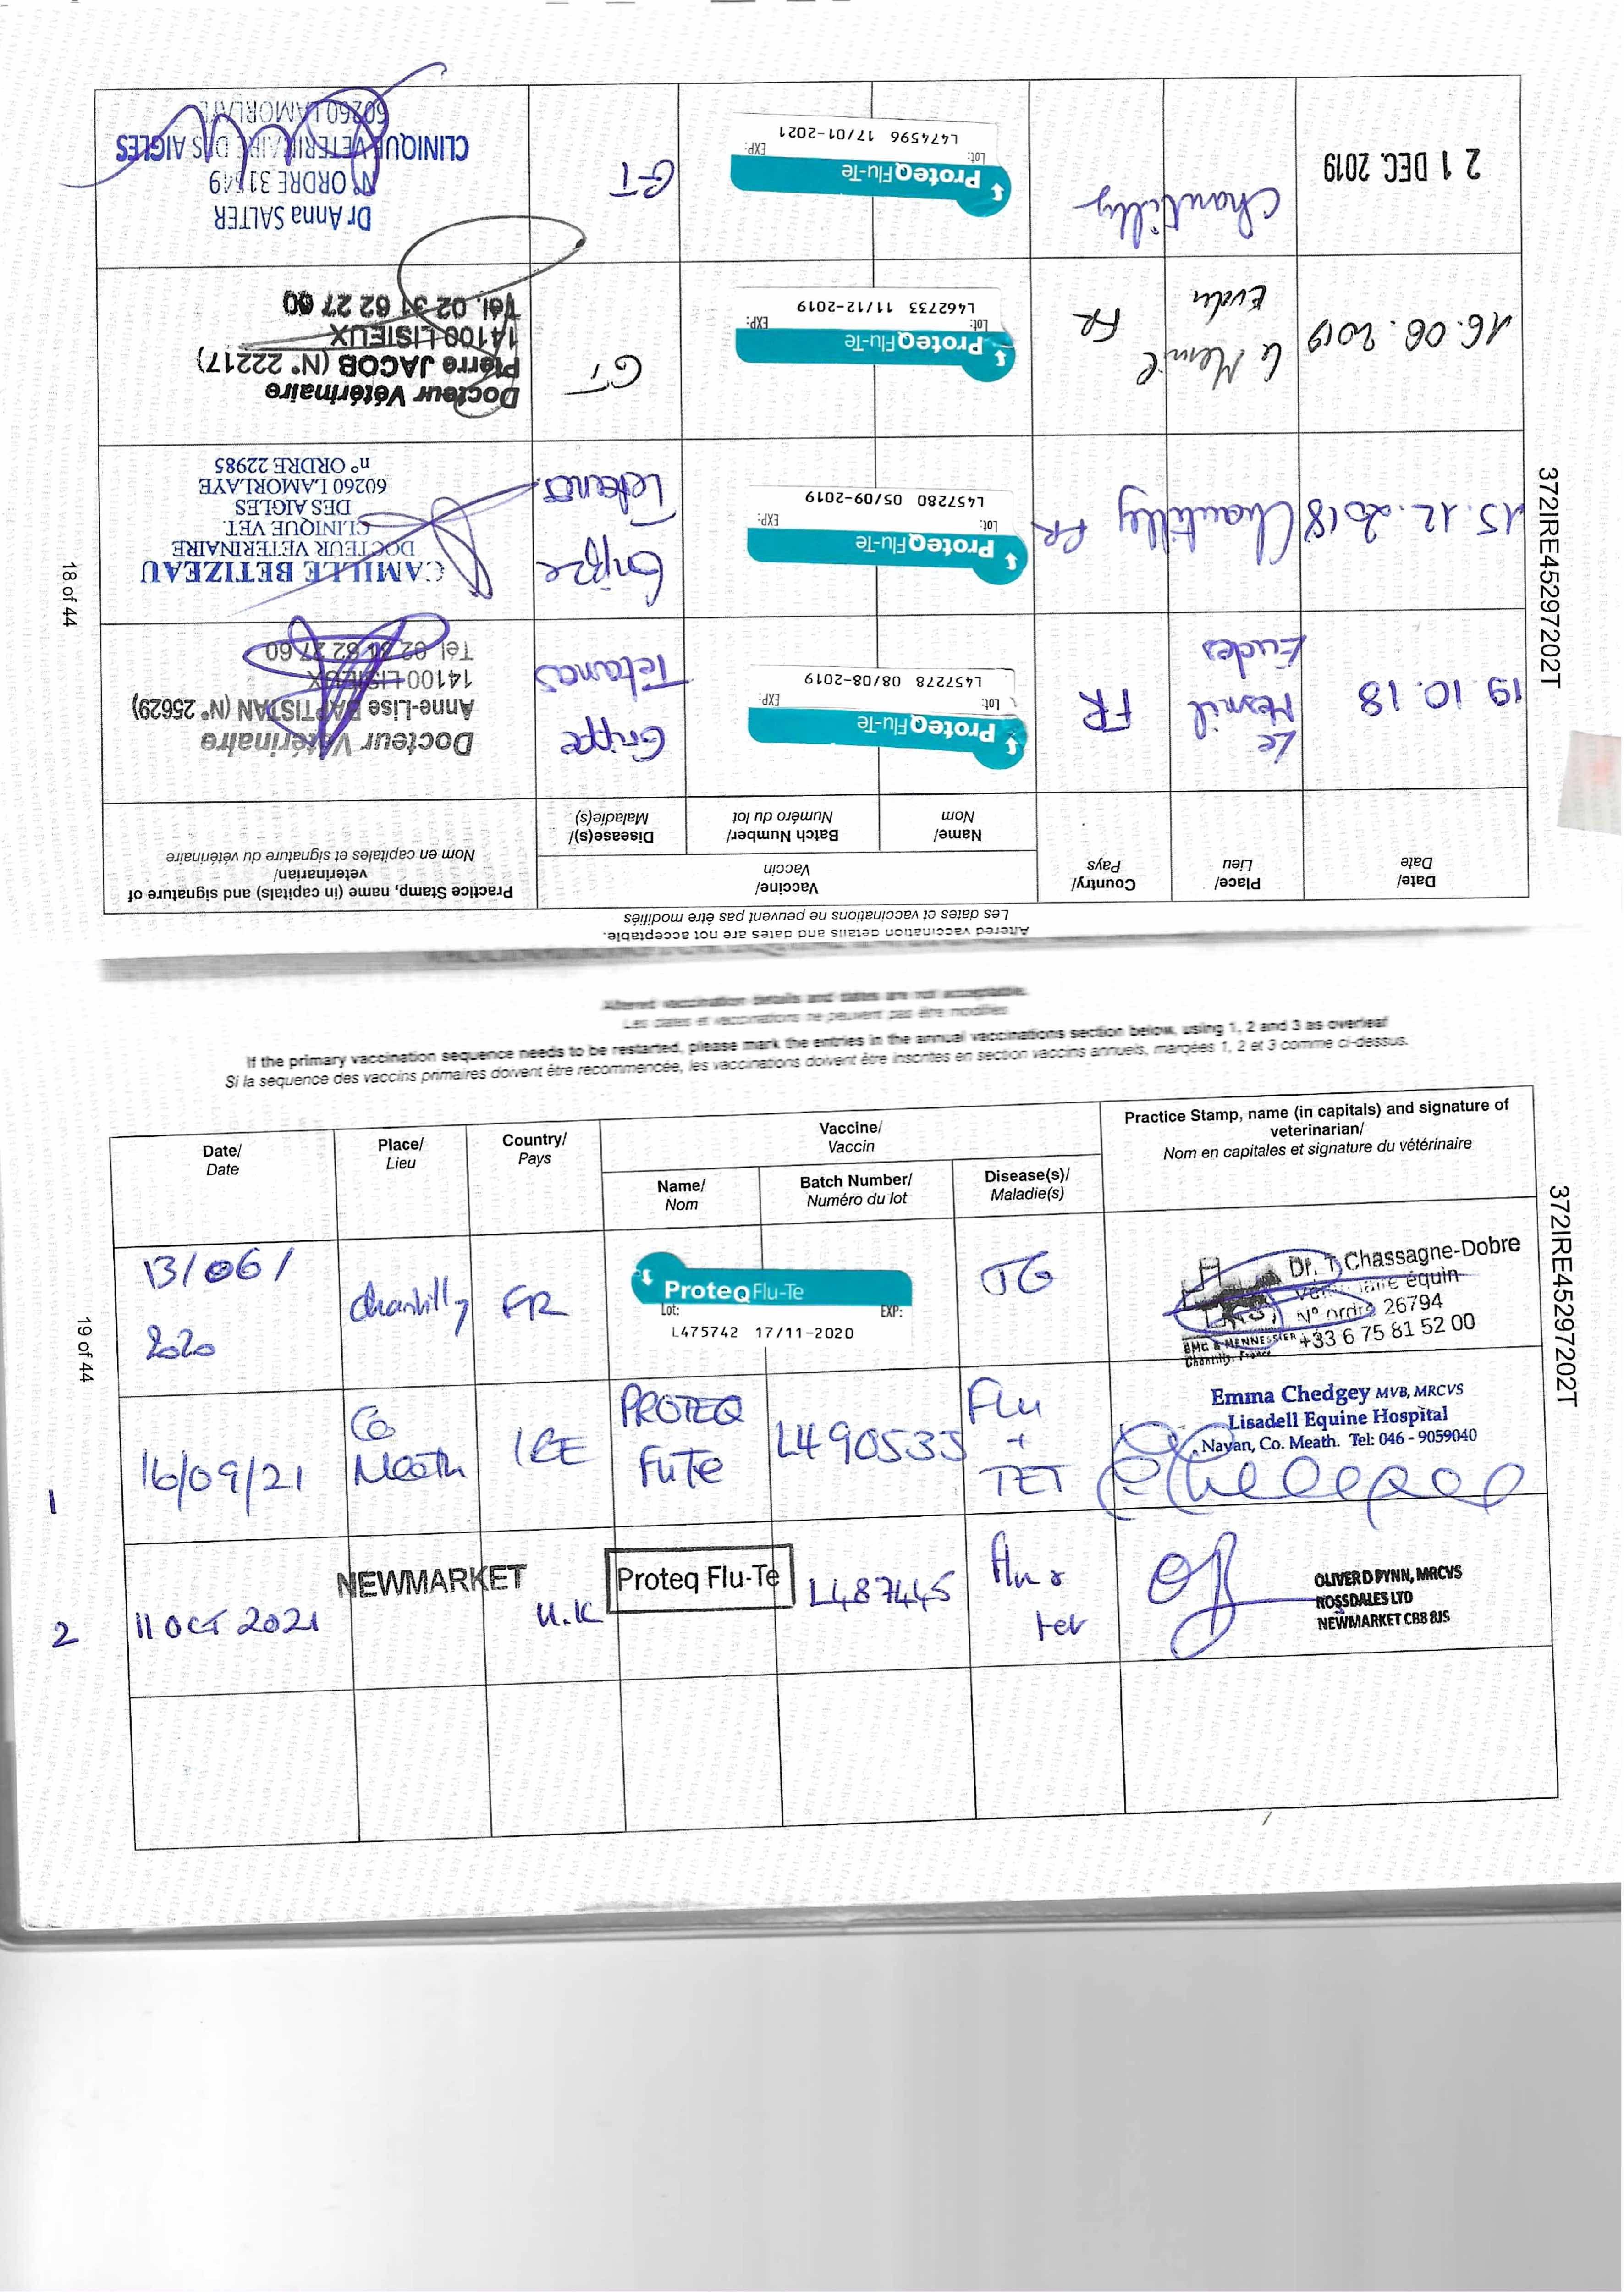 Altered vaccination details and dates are not acceptable.
Les dates et vaccinations ne peuvent pas être modifiés
Date/
Date
Place/
Lieu
Country/
Pays
Vaccine/
Vaccin
Name/
Nom
Batch Number/
Numéro du lot
Disease(s)/
Maladie(s)
Practice Stamp, name (in capitals) and signature of
veterinarian/
Nom en capitales et signature du vétérinaire
19.10.18
Le
Mesnil
Eudes
FR
ProteqFlu-Te
Lot: EXP:
L457278 08/08-2019
Grippe
Tetanos
Docteur Vétérinaire
Anne-Lise BAPTISTAN (N° 25629)
14100 LISIEUX
Tél 02 31 62 27 60
15.12.2018
Chantilly
FR
ProteqFlu-Te
Lot: EXP:
L457280 05/09-2019
Grippe
Tetanos
CAMILLE BETIZEAU
DOCTEUR VETERINAIRE
CLINIQUE VET.
DES AIGLES
60260 LAMORLAYE
n° ORDRE 22985
16.06.2019
Le Mesnil
Eudes
FR
ProteqFlu-Te
Lot: EXP:
L462733 11/12-2019
GT
Docteur Vétérinaire
Pierre JACOB (N° 22217)
14100 LISIEUX
Tél. 02 31 62 27 60
21 DEC. 2019
Chantilly
ProteqFlu-Te
Lot: EXP:
L474596 17/01-2021
GT
Dr Anna SALTER
N° ORDRE 31549
CLINIQUE VETERINAIRE DES AIGLES
60260 LAMORLAYE
372IRE45297202T
18 of 44
Altered vaccination details and dates are not acceptable.
Les dates et vaccinations ne peuvent pas être modifiés
If the primary vaccination sequence needs to be restarted, please mark the entries in the annual vaccinations section below, using 1, 2 and 3 as overleaf
Si la sequence des vaccins primaires doivent être recommencée, les vaccinations doivent être inscrites en section vaccins annuels, marqées 1, 2 et 3 comme ci-dessus.
Date/
Date
Place/
Lieu
Country/
Pays
Vaccine/
Vaccin
Name/
Nom
Batch Number/
Numéro du lot
Disease(s)/
Maladie(s)
Practice Stamp, name (in capitals) and signature of
veterinarian/
Nom en capitales et signature du vétérinaire
13/06/
2020
Chantilly
FR
ProteqFlu-Te
Lot: EXP:
L475742 17/11-2020
TG
Dr. T Chassagne-Dobre
Vétérinaire équin
N° ordre 26794
+33 6 75 81 52 00
Chantilly, France
1
16/09/21
Co
Meath
IRE
PROTEQ
FluTe
L490533
Flu
+
TET
Emma Chedgey MVB, MRCVS
Lisadell Equine Hospital
Navan, Co. Meath. Tel: 046 - 9059040
2
11 OCT 2021
NEWMARKET
U.K
Proteq Flu-Te
L487445
Flu &
tet
OLIVER D PYNN, MRCVS
ROSSDALES LTD
NEWMARKET CB8 8JS
372IRE45297202T
19 of 44